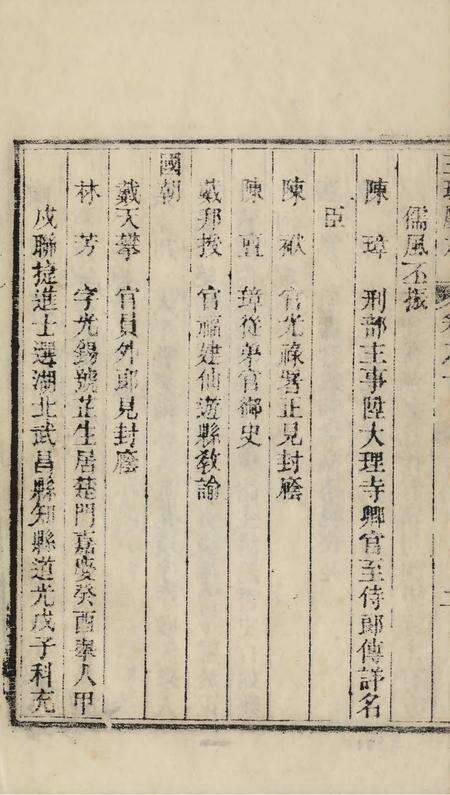 儒風丕振
陳璋 刑部主事陞大理寺卿官至侍郎傳詳名
臣
陳 官光祿署正見封廕
陳 璋從弟官御史
戴邦 官福建仙遊縣教諭
國朝
戴天攀 官員外郎見封廕
林芳 字光錫號芷生居楚門嘉慶癸酉舉人甲
戌聯捷進士選湖北武昌縣知縣道光戊子科充